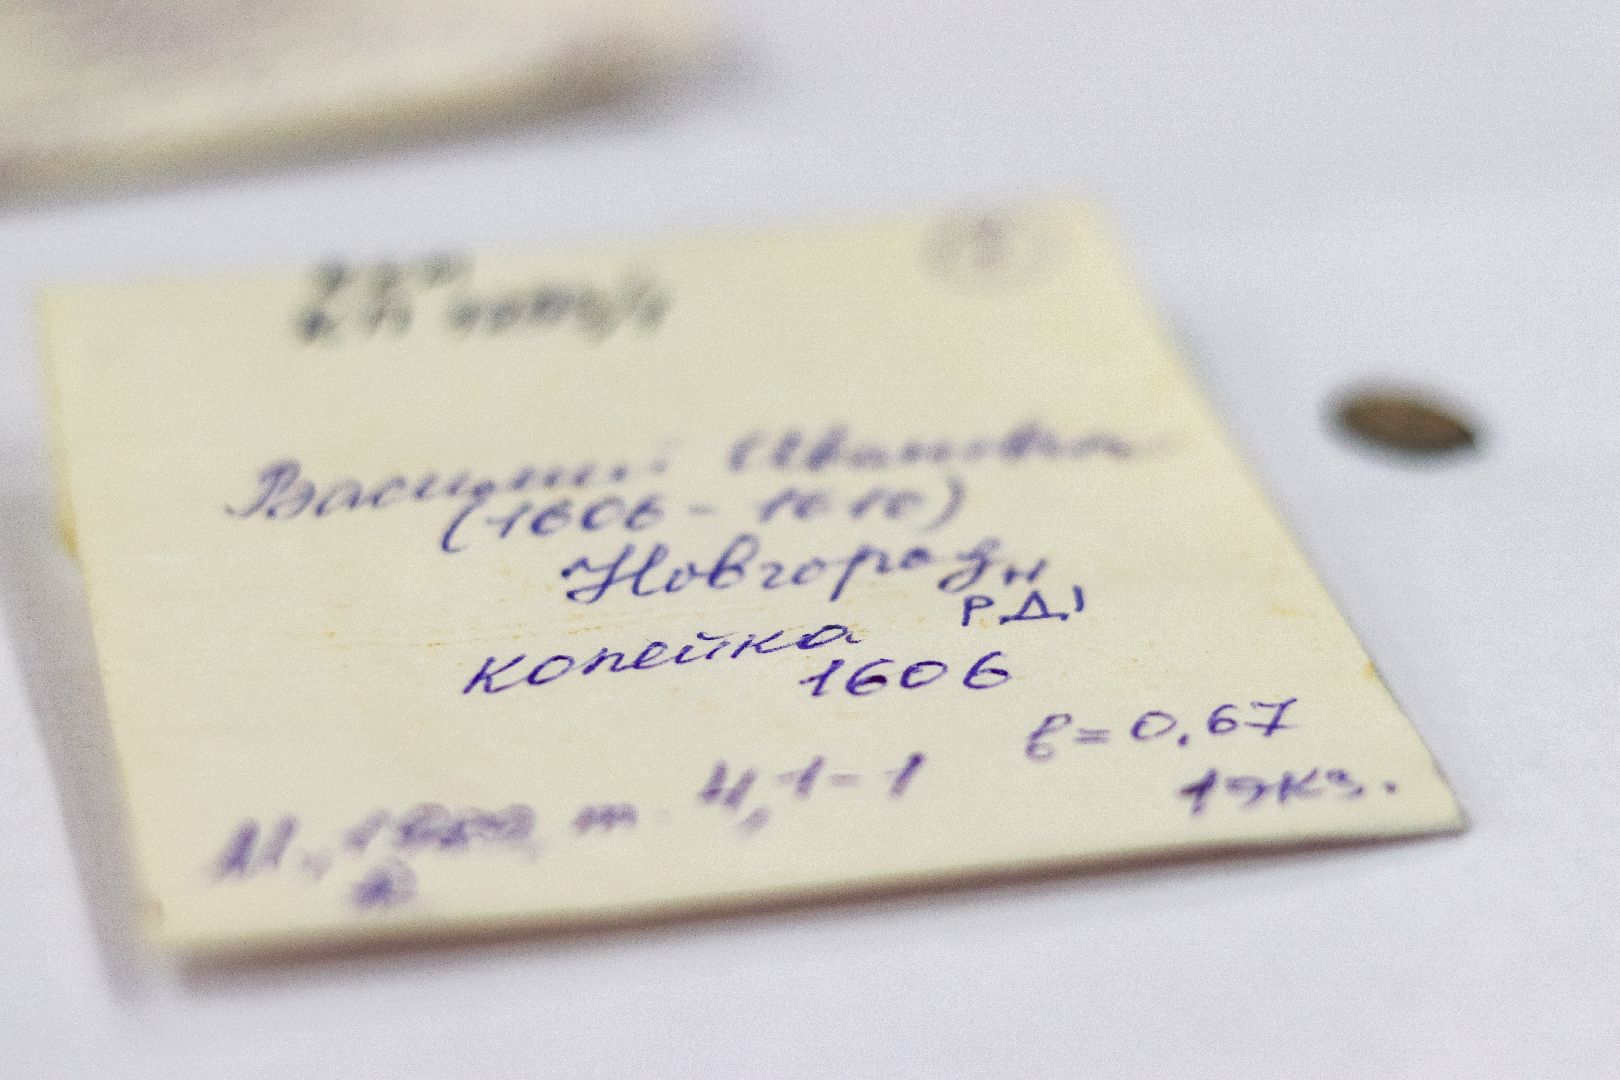 Василий Иванович
(1606 - 1610)
Новгород н
РДI
копейка
1606
в = 0,67
4,1 - 1
1 экз.